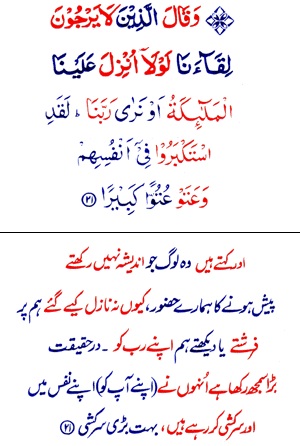 وَقَالَ الَّذِيْنَ لَا يَرْجُوْنَ
لِقَآءَنَا لَوْلَاۤ اُنْزِلَ عَلَيْنَا
الْمَلٰٓئِكَةُ اَوْ نَرٰى رَبَّنَا ؕ لَقَدِ
اسْتَكْبَرُوْا فِىْۤ اَنْفُسِهِمْ
وَعَتَوْ عُتُوًّا كَبِيْرًا ﴿۲۱﴾
اور کہتے ہیں وہ لوگ جو اندیشہ نہیں رکھتے
پیش ہونے کا ہمارے حضور، کیوں نہ نازل کیے گئے ہم پر
فرشتے یا دیکھتے ہم اپنے رب کو ۔ درحقیقت
بڑا سمجھ رکھا ہے اُنہوں نے (اپنے آپ کو) اپنے نفس میں
اور سرکشی کر رہے ہیں، بہت بڑی سرکشی ﴿۲۱﴾